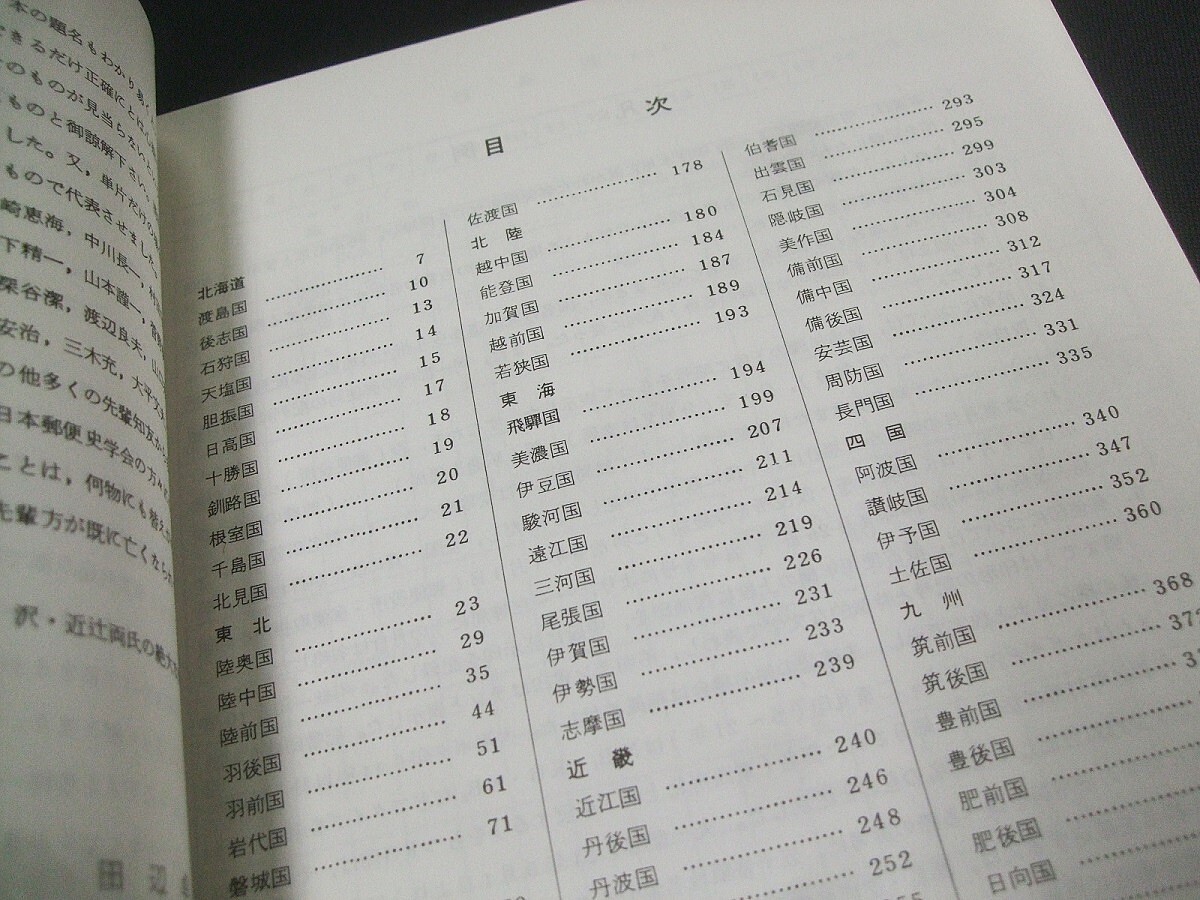 本の題名もわかり
きるだけ正確にと
のものが見当らない
ものと御諒解下さい。
した。又，単片だけの
もので代表させました。
崎恵海，中川長一，
下精一，山本謹一，
深谷潔，渡辺良夫，
安治，三木充，大平
の他多くの先輩知友か
日本郵便史学会の方々
ことは，何物にも替え
先輩方が既に亡くなられ
沢・近辻両氏の絶大
田辺
目 次
北海道
渡島国 7
後志国 10
石狩国 13
天塩国 14
胆振国 15
日高国 17
十勝国 18
釧路国 19
根室国 20
千島国 21
北見国 22
東 北
陸奥国 23
陸中国 29
陸前国 35
羽後国 44
羽前国 51
岩代国 61
磐城国 71
佐渡国 178
北 陸
越中国 180
能登国 184
加賀国 187
越前国 189
若狭国 193
東 海
飛驒国 194
美濃国 199
伊豆国 207
駿河国 211
遠江国 214
三河国 219
尾張国 226
伊賀国 231
伊勢国 233
志摩国 239
近 畿
近江国 240
丹後国 246
丹波国 248
252
伯耆国 293
出雲国 295
石見国 299
隠岐国 303
美作国 304
備前国 308
備中国 312
備後国 317
安芸国 324
周防国 331
長門国 335
四 国
阿波国 340
讃岐国 347
伊予国 352
土佐国 360
九 州
筑前国 368
筑後国
豊前国
豊後国
肥前国
肥後国
日向国